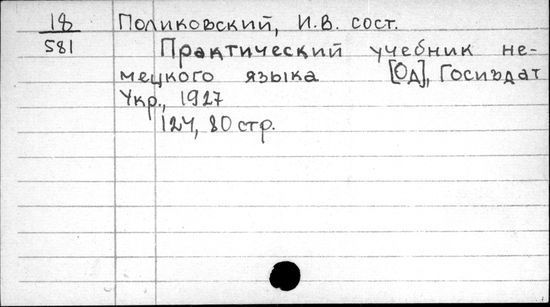 18 Поликовский, И.В. сост.
581 Практический учебник не-
мецкого языка [Од], Госиздат
Укр., 1927
124, 80 стр.